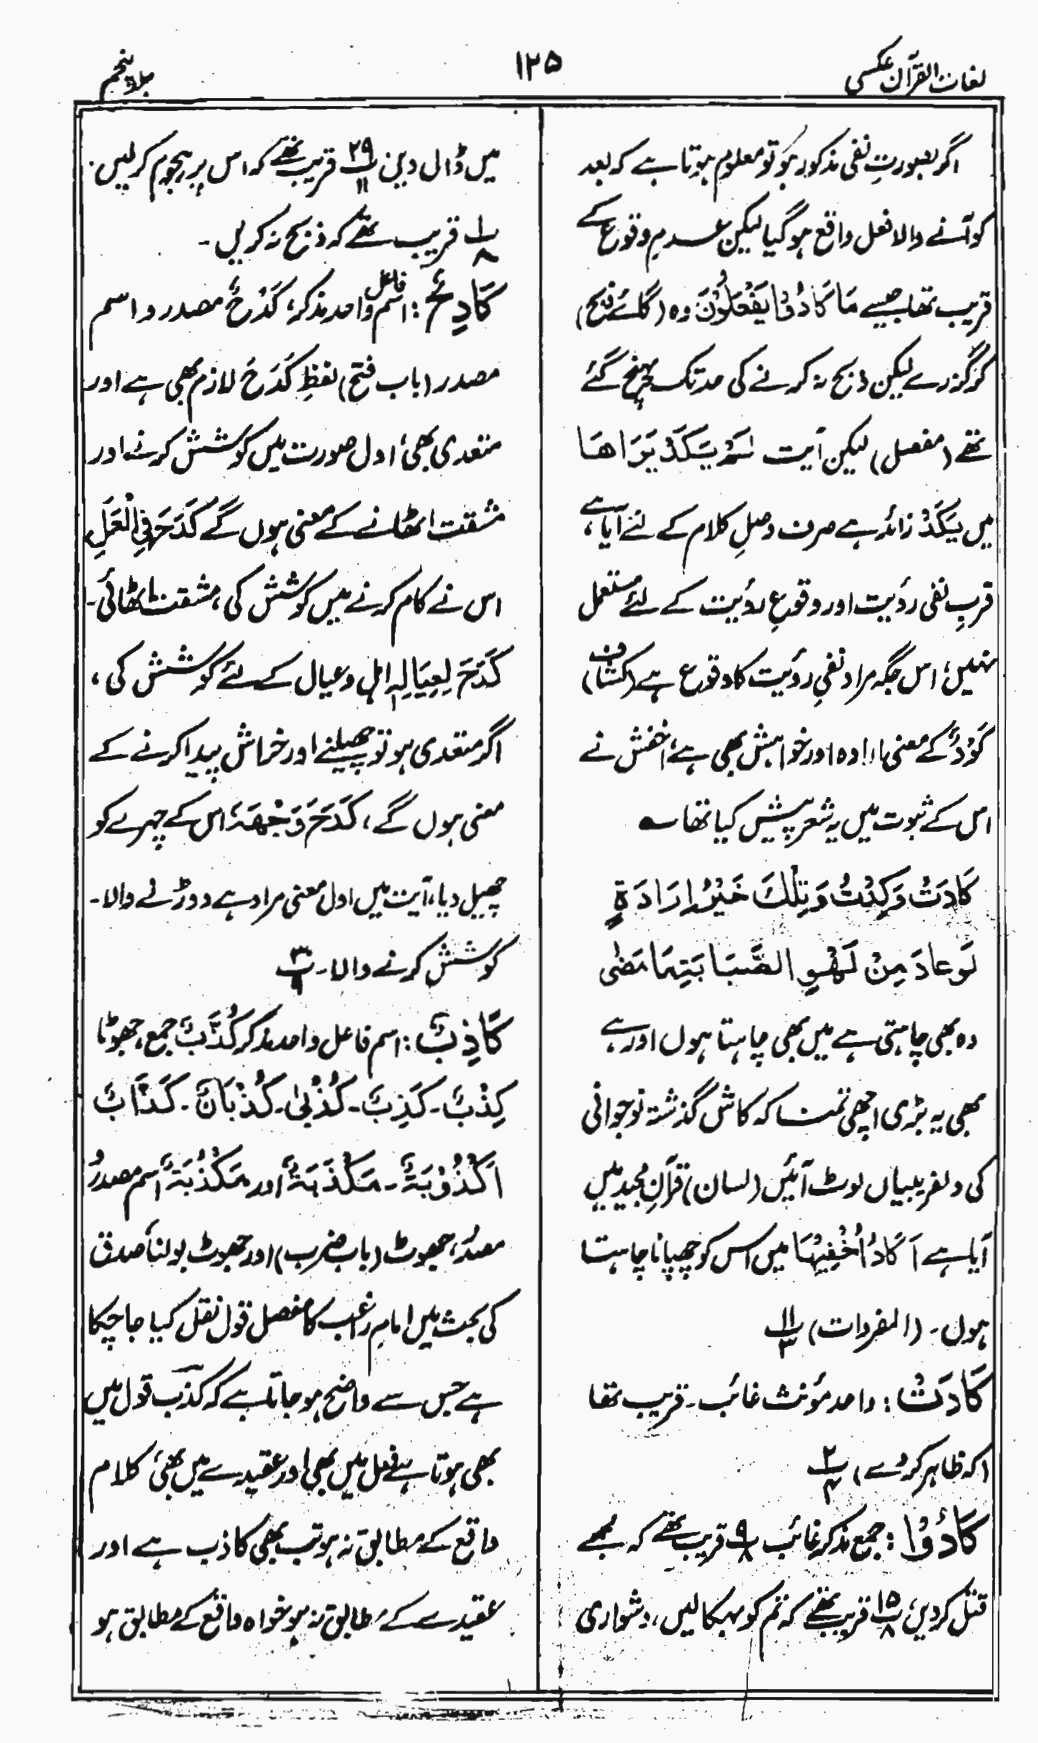 لغات القرآن عکسی
۱۲۵
جلد پنجم
اگر بصورتِ نفی مذکور ہو تو معلوم ہوتا ہے کہ بعد
کو آنے والا فعل واقع ہو گیا لیکن عدمِ وقوع کے
قریب تھا جیسے مَا کَادُوْا یَفْعَلُوْنَ وہ (گائے ذبح)
کر گزرے لیکن ذبح نہ کرنے کی حد تک پہنچ گئے
تھے (مفصل) لیکن آیت لَمْ یَکَدْ یَرَاھَا
میں یَکَدْ زائد ہے صرف وصلِ کلام کے لئے آیا ہے،
قربِ نفی رؤیت اور وقوعِ رؤیت کے لئے مستعمل
نہیں؛ اس جگہ مراد نفیِ رؤیت کا وقوع ہے (کشاف)
کَوْدٌ کے معنی ارادہ اور خواہش بھی ہے، اخفش نے
اس کے ثبوت میں یہ شعر پیش کیا تھا ؎
کَادَتْ وَکِدْتُ وَتِلْكَ خَیْرُ اِرَادَةٍ
لَوْ عَادَ مِنْ لَهْوِ الصَّبَابَتِهَا مَضٰی
وہ بھی چاہتی ہے میں بھی چاہتا ہوں اور ہے
بھی یہ بڑی اچھی تمنا کہ کاش گذشتہ نوجوانی
کی دلفریبیاں لوٹ آئیں (لسان) قرآنِ مجید میں
آیا ہے اَکَادُ اُخْفِیْهَا میں اس کو چھپانا چاہتا
ہوں۔ (المفردات) ۱۱/۳
کَادَتْ: واحد مؤنث غائب۔ قریب تھا
(کہ ظاہر کر دے) ۲/۴
کَادُوْا: جمع مذکر غائب ۹/۸ قریب تھے کہ مجھے
قتل کر دیں، ۱۵/۸ قریب تھے کہ تم کو بہکا لیں، دشواری
میں ڈال دیں ۲۹/۱۱ قریب تھے کہ اس پر ہجوم کر لیں۔
۱/۸ قریب تھے کہ ذبح نہ کریں۔
کَادِحٌ: اسم فاعل واحد مذکر، کَدْحٌ مصدر و اسم
مصدر (باب فتح) لفظِ کَدَحَ لازم بھی ہے اور
متعدی بھی، اول صورت میں کوشش کرنے اور
مشقت اٹھانے کے معنی ہوں گے کَدَحَ فِی الْعَمَلِ
اس نے کام کرنے میں کوشش کی، مشقت اٹھائی۔
کَدَحَ لِعِیَالِهٖ اہل و عیال کے لئے کوشش کی،
اگر متعدی ہو تو چھیلنے اور خراش پیدا کرنے کے
معنی ہوں گے، کَدَحَ وَجْهَهٗ اس کے چہرے کو
چھیل دیا، آیت میں اول معنی مراد ہے دوڑنے والا۔
کوشش کرنے والا۔ ۳/۹
کَاذِبٌ: اسم فاعل واحد مذکر کُذَّبٌ جمع، جھوٹا
کِذْبٌ۔ کَذِبٌ۔ کُذْبٰی۔ کُذْبَانٌ۔ کَذَّابٌ
اُکْذُوْبَةٌ۔ مَکْذَبَةٌ اور مَکْذُبَةٌ اسم مصدر
مصدر، جھوٹ (باب ضرب) اور جھوٹ بولنا صدق
کی بحث میں امام راغب کا مفصل قول نقل کیا جا چکا
ہے جس سے واضح ہو جاتا ہے کہ کذب قول میں
بھی ہوتا ہے فعل میں بھی اور عقیدے میں بھی، کلام
واقع کے مطابق نہ ہو تب بھی کاذب ہے اور
عقیدے کے مطابق نہ ہو خواہ واقع کے مطابق ہو